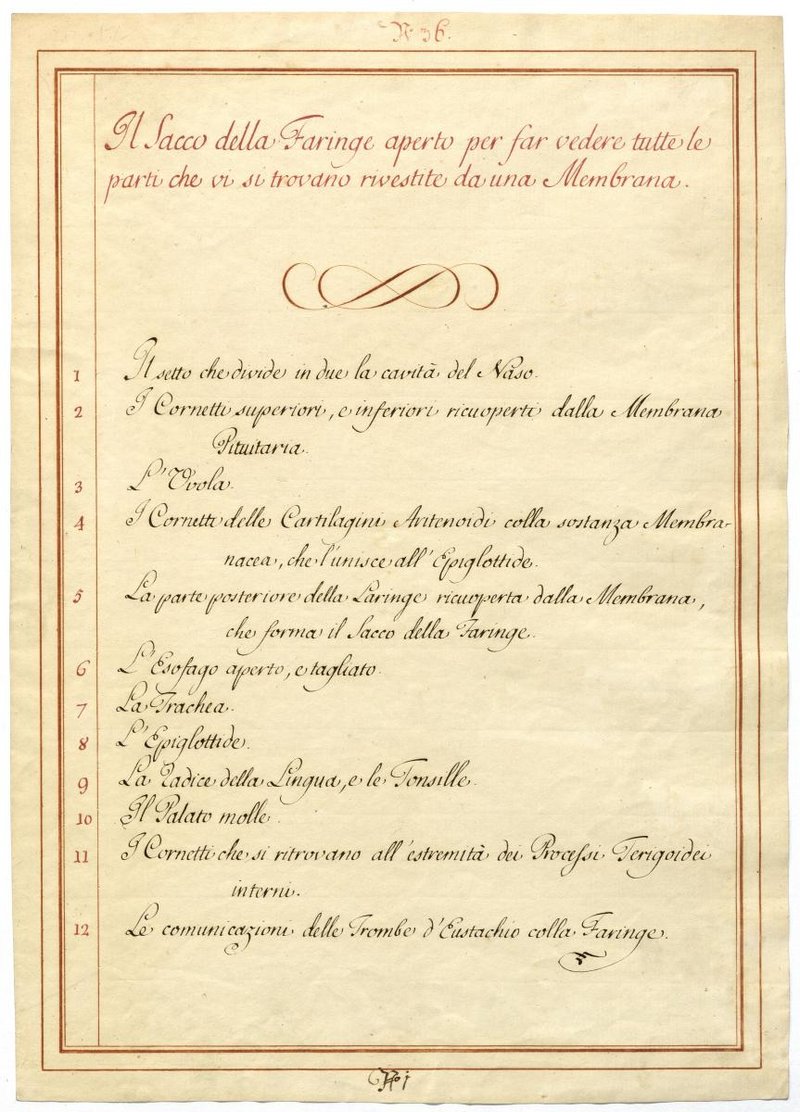 Nº 36.
Il Sacco della Faringe aperto per far vedere tutte le
parti che vi si trovano rivestite da una Membrana.
1 Il setto che divide in due la cavità del Naso.
2 I Cornetti superiori, e inferiori ricuoperti dalla Membrana
Pituitaria.
3 L'Uvola.
4 I Cornetti delle Cartilagini Aritenoidi colla sostanza Membra-
nacea, che l'unisce all'Epiglottide.
5 La parte posteriore della Laringe ricuoperta dalla Membrana,
che forma il Sacco della Faringe.
6 L'Esofago aperto, e tagliato.
7 La Trachea.
8 L'Epiglottide.
9 La Radice della Lingua, e le Tonsille.
10 Il Palato molle.
11 I Cornetti che si ritrovano all'estremità dei Processi Terigoidei
interni.
12 Le comunicazioni delle Trombe d'Eustachio colla Faringe.